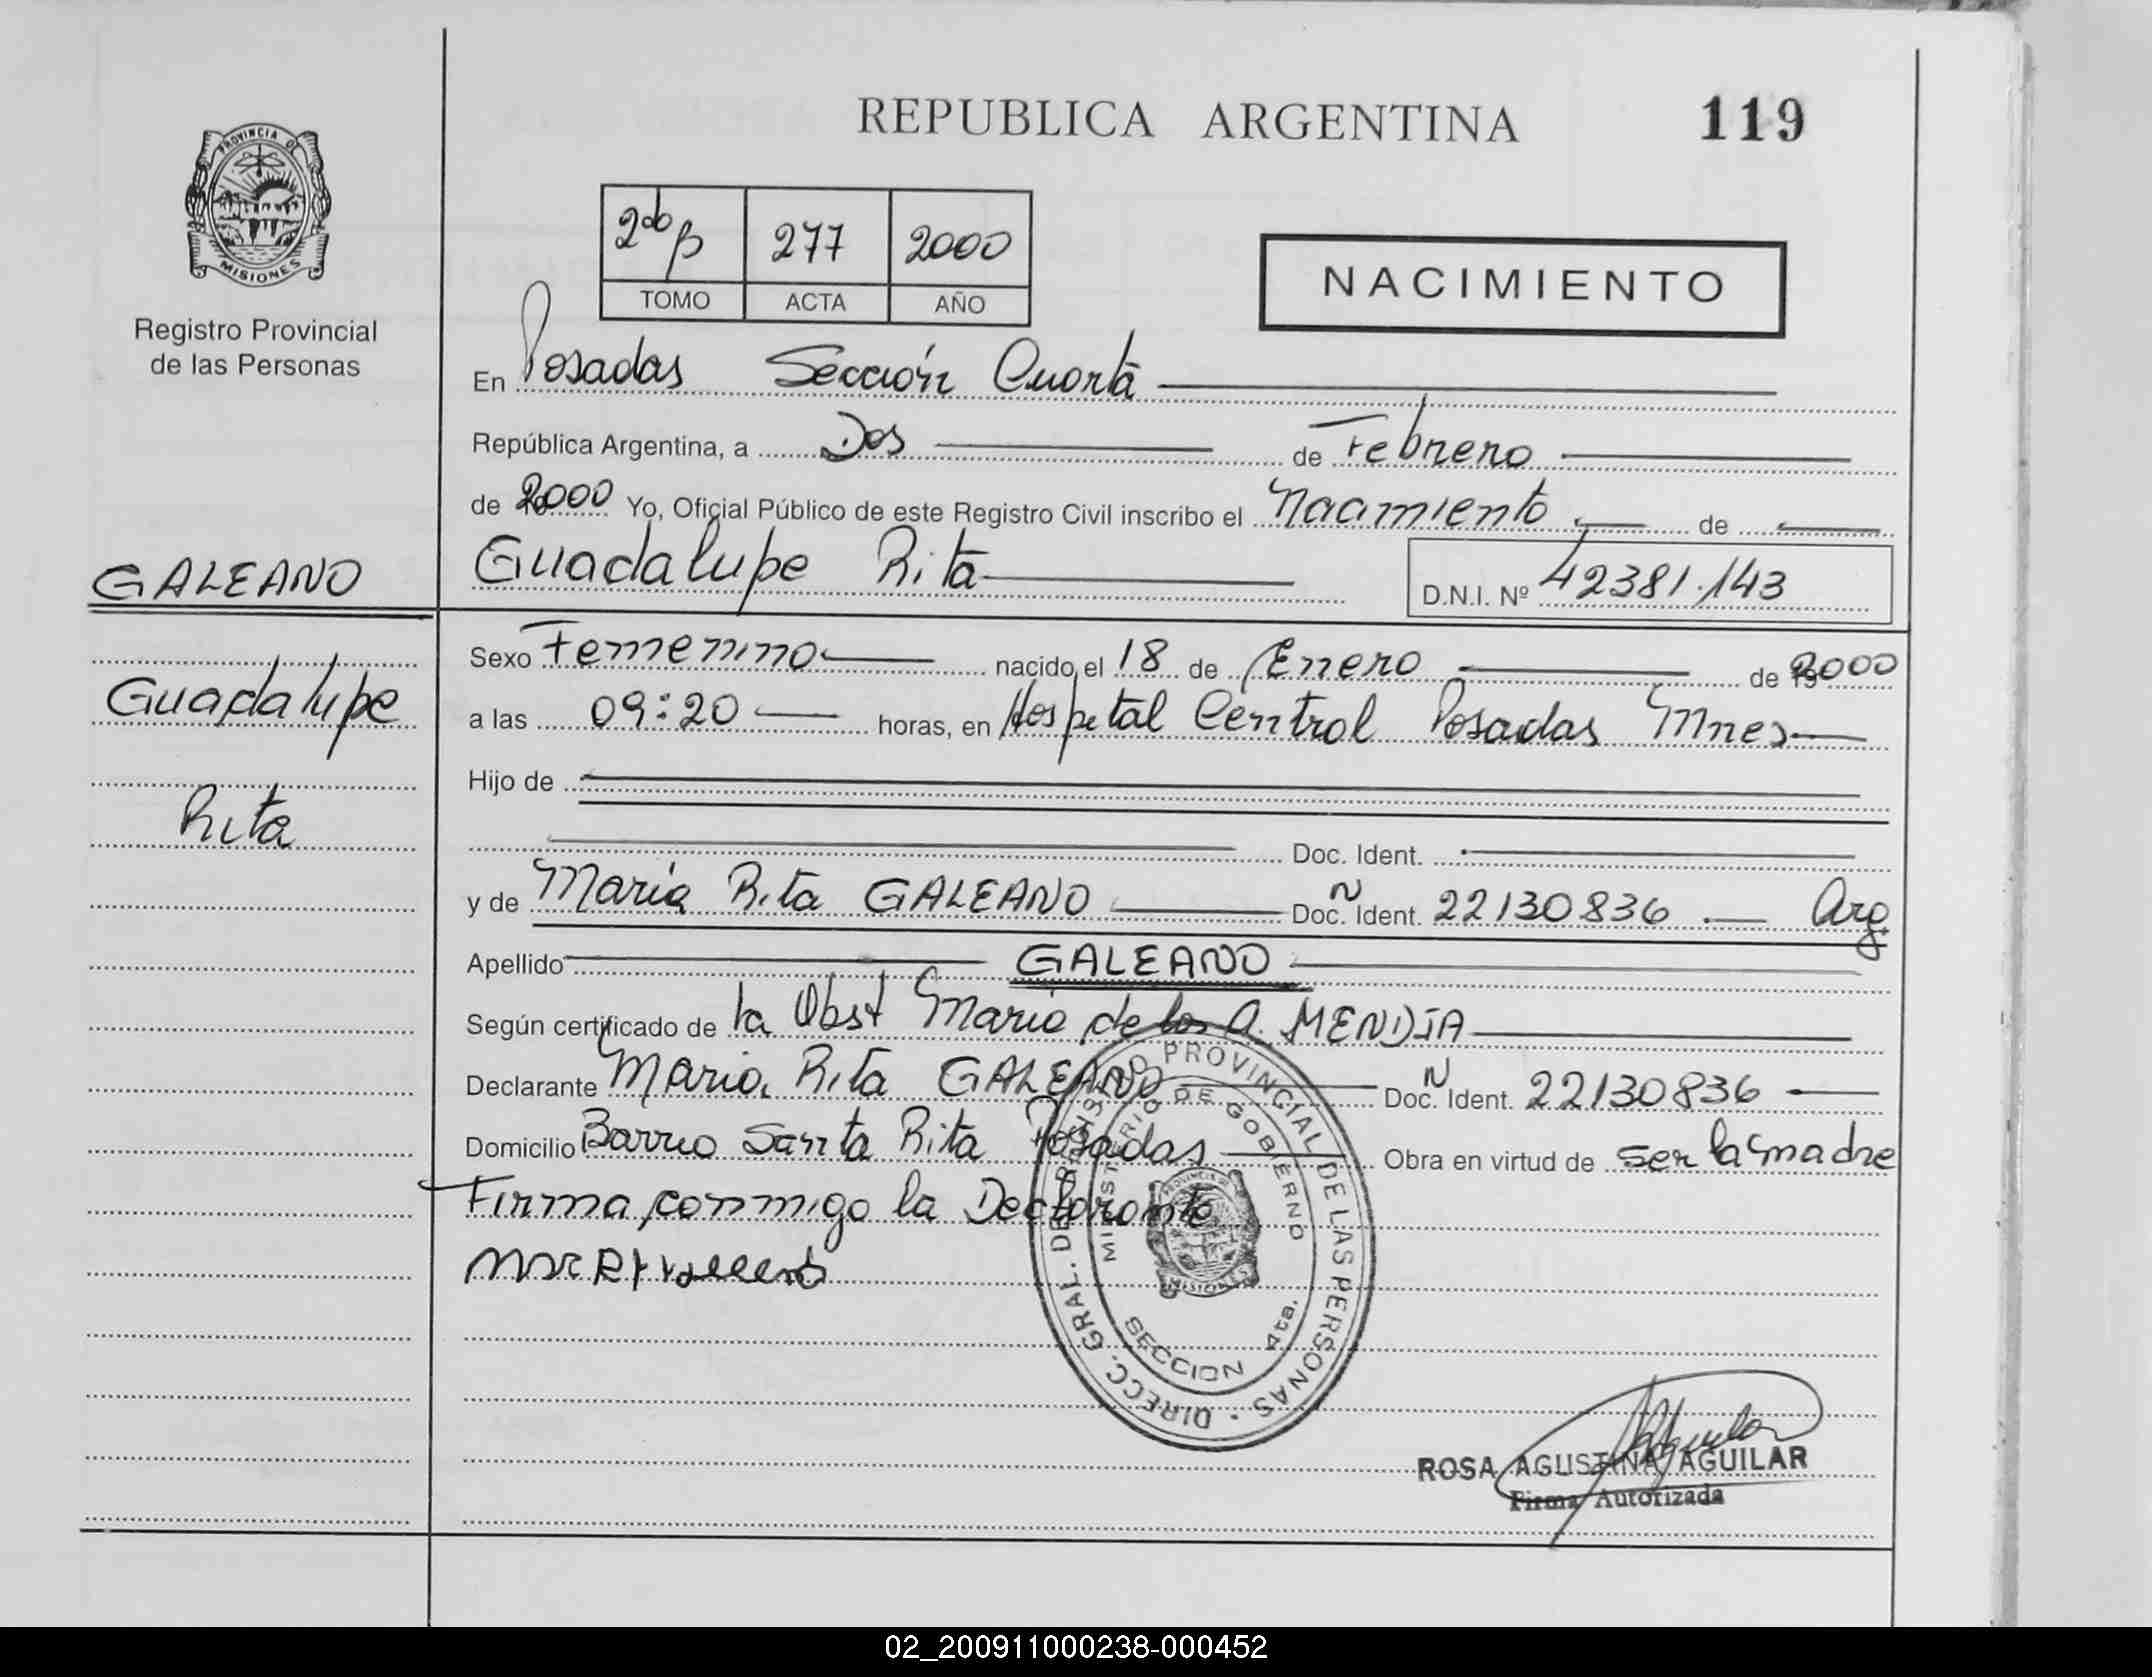 REPUBLICA ARGENTINA
119
PROVINCIA DE
MISIONES
Registro Provincial
de las Personas
2do B 277 2000
TOMO ACTA AÑO
NACIMIENTO
En Posadas Sección Cuarta
República Argentina, a Dos de Febrero
de 2000 Yo, Oficial Público de este Registro Civil inscribo el Nacimiento de
GALEANO
Guadalupe Rita
D.N.I. Nº 42381.143
Guadalupe
Rita
Sexo Femenino nacido el 18 de Enero de 2000
a las 09:20 horas, en Hospital Central Posadas Mnes
Hijo de
Doc. Ident.
y de María Rita GALEANO Doc. N Ident. 22130836 Arg
Apellido GALEANO
Según certificado de la Obst María de los A. MENDIA
Declarante María Rita GALEANO Doc. N Ident. 22130836
Domicilio Barrio Santa Rita Posadas Obra en virtud de ser la madre
Firma conmigo la Declarante
DIRECC. GRAL. DE REGISTRO PROVINCIAL DE LAS PERSONAS
MINISTERIO DE GOBIERNO
MISIONES
SECCION 4ta.
ROSA AGUSTINA AGUILAR
Firma Autorizada
02_200911000238-000452